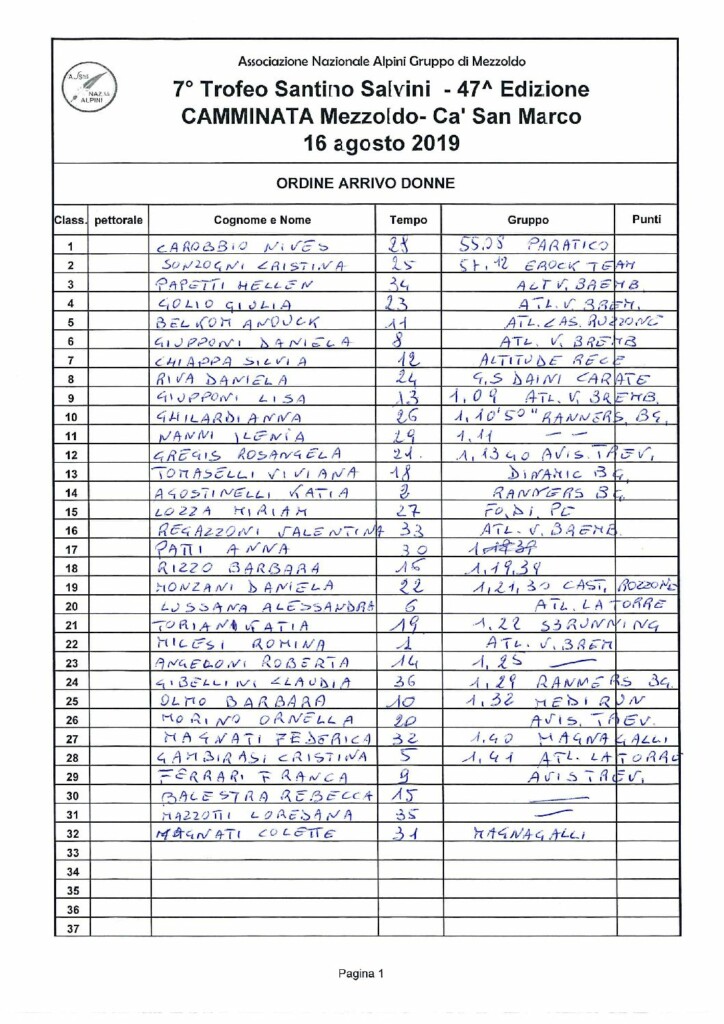 Associazione Nazionale Alpini Gruppo di Mezzoldo
7° Trofeo Santino Salvini - 47^ Edizione
CAMMINATA Mezzoldo- Ca' San Marco
16 agosto 2019
ASSNE NAZ.LE ALPINI
ORDINE ARRIVO DONNE
Class. pettorale Cognome e Nome Tempo Gruppo Punti
1 CAROBBIO NIVES 28 55.08 PARATICO
2 SONZOGNI CRISTINA 25 57.12 EROCK TEAM
3 PAPETTI HELLEN 34 ALT V. BREMB.
4 GOLIO GIULIA 23 ATL. V. BREM.
5 BELKOM ANOUCK 11 ATL. CAS. ROZZONE
6 GIUPPONI DANIELA 8 ATL. V. BREMB
7 CHIAPPA SILVIA 12 ALTITUDE RECE
8 RIVA DANIELA 24 G.S DAINI CARATE
9 GIUPPONI LISA 13 1,09 ATL. V. BREMB.
10 GHILARDI ANNA 26 1,10'50" RANNERS BG.
11 NANNI ILENIA 29 1,11 — —
12 GREGIS ROSANGELA 21. 1,1340 AVIS. TREV.
13 TOMASELLI VIVIANA 18 DINAMIC BG.
14 AGOSTINELLI KATIA 2 RANNERS BG.
15 LOZZA MIRIAM 27 FO. DI. PE
16 REGAZZONI VALENTINA 33 ATL. V. BREMB.
17 PATTI ANNA 30
18 RIZZO BARBARA 16 1,19,39
19 MONZANI DANIELA 22 1,21,30 CAST. ROZZONE
20 LUSSANA ALESSANDRA 6 ATL. LA TORRE
21 TORIANI KATIA 19 1,22 S3RUNNING
22 MILESI ROMINA 1 ATL. V. BREM
23 ANGELONI ROBERTA 14 1,25 —
24 GIBELLINI CLAUDIA 36 1,29 RANNERS BG.
25 OLMO BARBARA 10 1,32 MEDI RUN
26 MORINO ORNELLA 20 AVIS. TREV.
27 MAGNATI FEDERICA 32 1.40 MAGNAGALLI
28 GAMBIRASI CRISTINA 5 1,41 ATL. LA TORRE
29 FERRARI FRANCA 9 AVIS TREV.
30 BALESTRA REBECCA 15 —
31 MAZZOTTI LOREDANA 35 —
32 MAGNATI COLETTE 31 MAGNAGALLI
33
34
35
36
37
Pagina 1